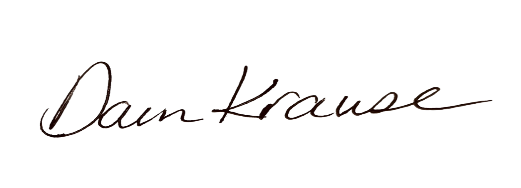 Dawn Krause